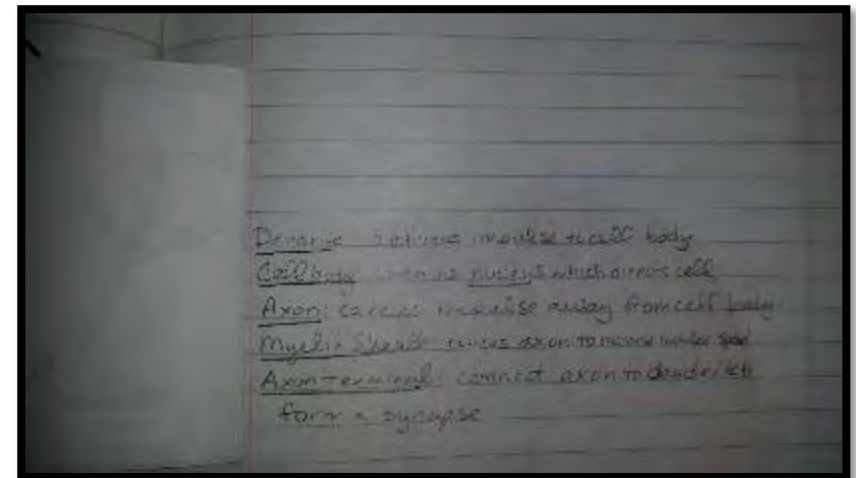 impulse to cell body
Cell body nucleus which directs cell
Axon: carries impulse away from cell body
Myelin Sheath axon to increase impulse speed
Axon terminal: connect axon to dendrite to
form a synapse